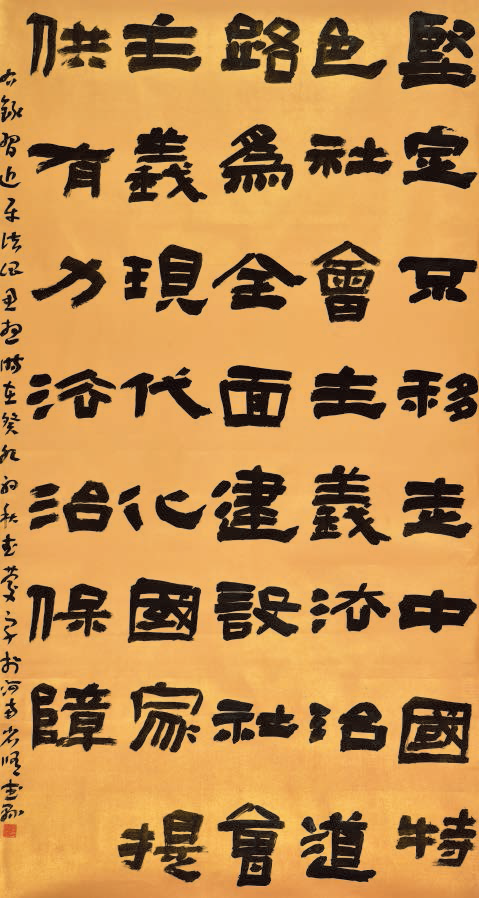 堅定不移走中國特
色社會主義法治道
路為全面建設社會
主義現代化國家提
供有力法治保障
右錄習近平法治思想時在癸卯初秋於河南